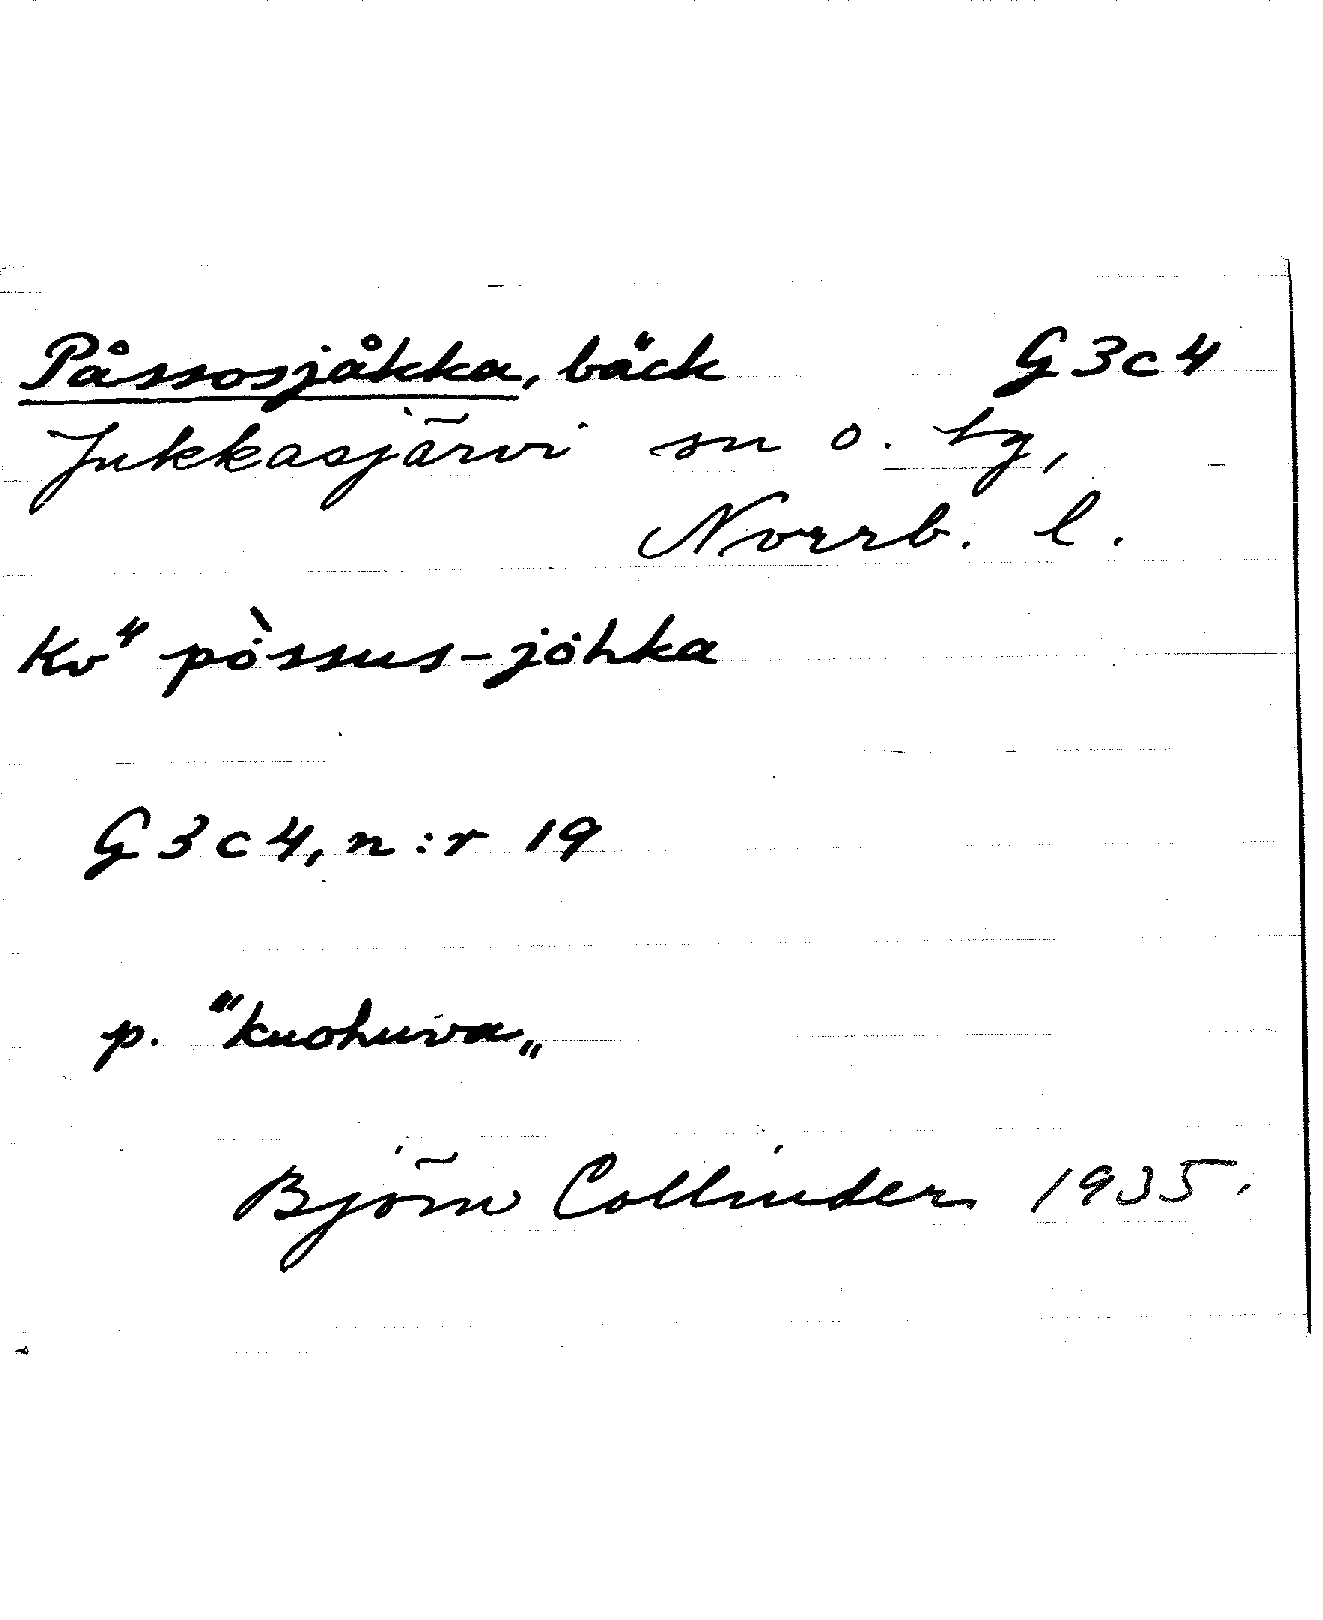 Påssosjåkka, bäck G3c4
Jukkasjärvi sn o. tg,
Norrb. l.
Kv" pȯ̀ssus-jȯhka
G3c4, n:r 19
p. "kuohuva„
Björn Collinder 1935.